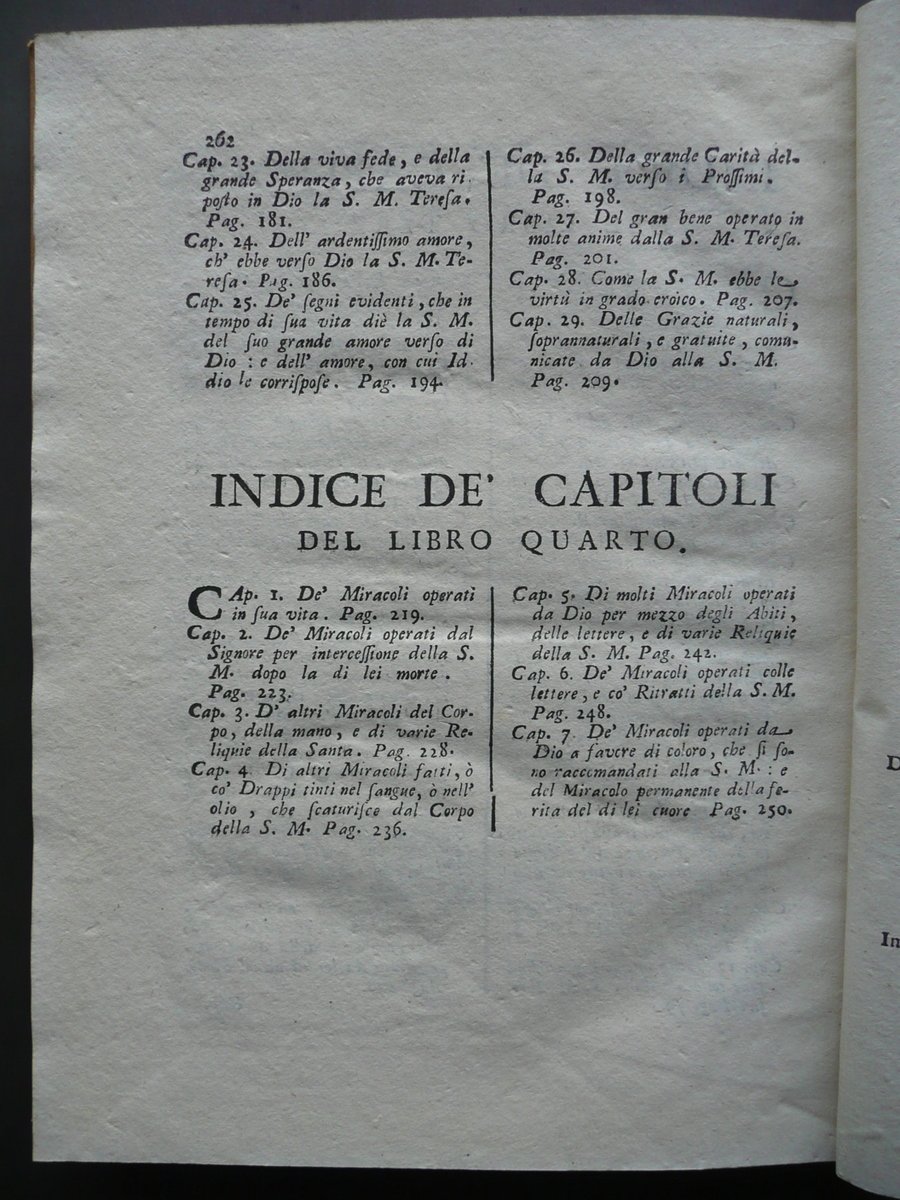 262
Cap. 23. Della viva fede, e della
grande Speranza, che aveva ri
poſto in Dio la S. M. Tereſa.
Pag. 181.
Cap. 24. Dell' ardentiſſimo amore,
ch' ebbe verſo Dio la S. M. Te-
reſa. Pag. 186.
Cap. 25. De' ſegni evidenti, che in
tempo di ſua vita diè la S. M.
del ſuo grande amore verſo di
Dio : e dell' amore, con cui Id.
dio le corriſpoſe. Pag. 194.
Cap. 26. Della grande Carità del-
la S. M. verſo i Proſſimi.
Pag. 198.
Cap. 27. Del gran bene operato in
molte anime dalla S. M. Tereſa.
Pag. 201.
Cap. 28. Come la S. M. ebbe le
virtù in grado eroico. Pag. 207.
Cap. 29. Delle Grazie naturali,
ſoprannaturali, e gratuite, comu-
nicate da Dio alla S. M.
Pag. 209.
INDICE DE' CAPITOLI
DEL LIBRO QUARTO.
CAp. 1. De' Miracoli operati
in ſua vita. Pag. 219.
Cap. 2. De' Miracoli operati dal
Signore per interceſſione della S.
M. dopo la di lei morte.
Pag. 223.
Cap. 3. D' altri Miracoli del Cor-
po, della mano, e di varie Re-
liquie della Santa. Pag. 228.
Cap. 4. Di altri Miracoli fatti, ò
co' Drappi tinti nel ſangue, ò nell'
olio, che ſcaturiſce dal Corpo
della S. M. Pag. 236.
Cap. 5. Di molti Miracoli operati
da Dio per mezzo degli Abiti,
delle lettere, e di varie Reliquie
della S. M. Pag. 242.
Cap. 6. De' Miracoli operati colle
lettere, e co' Ritratti della S. M.
Pag. 248.
Cap. 7. De' Miracoli operati da
Dio a favore di coloro, che ſi ſo-
no raccomandati alla S. M. : e
del Miracolo permanente della fe-
rita del di lei cuore Pag. 250.
D
Im